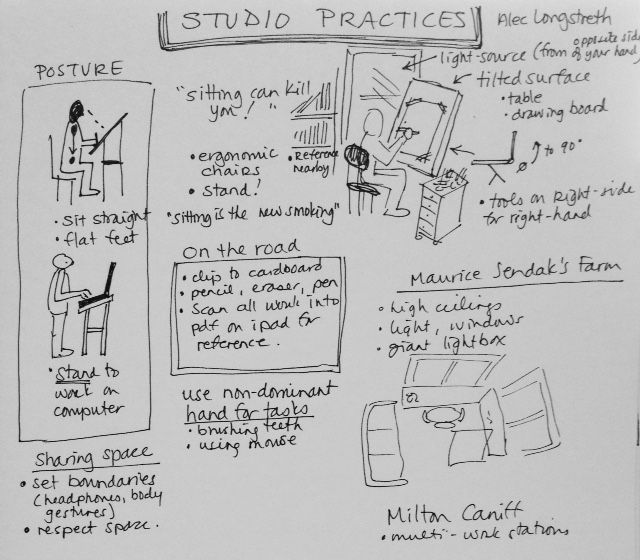 STUDIO PRACTICES
Alec Longstreth
POSTURE
• sit straight
• flat feet
• Stand to
work on
computer
Sharing space
• set boundaries
(headphones, body
gestures)
• respect space.
"sitting can kill
you!"
• ergonomic
chairs
• stand!
• Reference
nearby
"sitting is the new smoking"
light-source (from opposite side
of your hand)
tilted surface
• table
• drawing board
to 90°
• tools on right-side
for right-hand
on the road
• clip to cardboard
• pencil, eraser, pen
• Scan all work into
pdf on ipad for
reference.
use non-dominant
hand for tasks
• brushing teeth
• using mouse
Maurice Sendak's Farm
• high ceilings
• light, windows
• giant lightbox
Milton Caniff
• multi-work stations